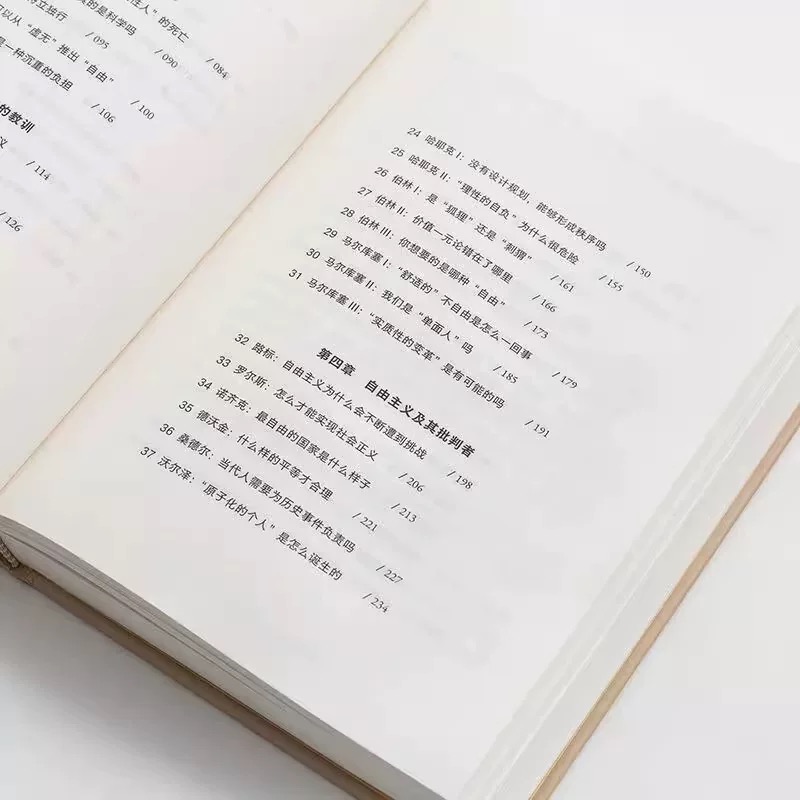 立独行 / 095
性人”的死亡 / 084
的是科学吗 / 090
可以从“虚无”推出“自由” / 100
是一种沉重的负担 / 106
的教训
议 / 114
/ 126
24 哈耶克 I：没有设计规划，能够形成秩序吗 / 150
25 哈耶克 II：“理性的自负”为什么很危险 / 155
26 伯林 I：是“狐狸”还是“刺猬” / 161
27 伯林 II：价值一元论错在了哪里 / 166
28 伯林 III：你想要的是哪种“自由” / 173
29 马尔库塞 I：“舒适的”不自由是怎么一回事 / 179
30 马尔库塞 II：我们是“单面人”吗 / 185
31 马尔库塞 III：“实质性的变革”是有可能的吗 / 191
第四章 自由主义及其批判者
32 路标：自由主义为什么会不断遭到挑战 / 198
33 罗尔斯：怎么才能实现社会正义 / 206
34 诺齐克：最自由的国家是什么样子 / 213
35 德沃金：什么样的平等才合理 / 221
36 桑德尔：当代人需要为历史事件负责吗 / 227
37 沃尔泽：“原子化的个人”是怎么诞生的 / 234